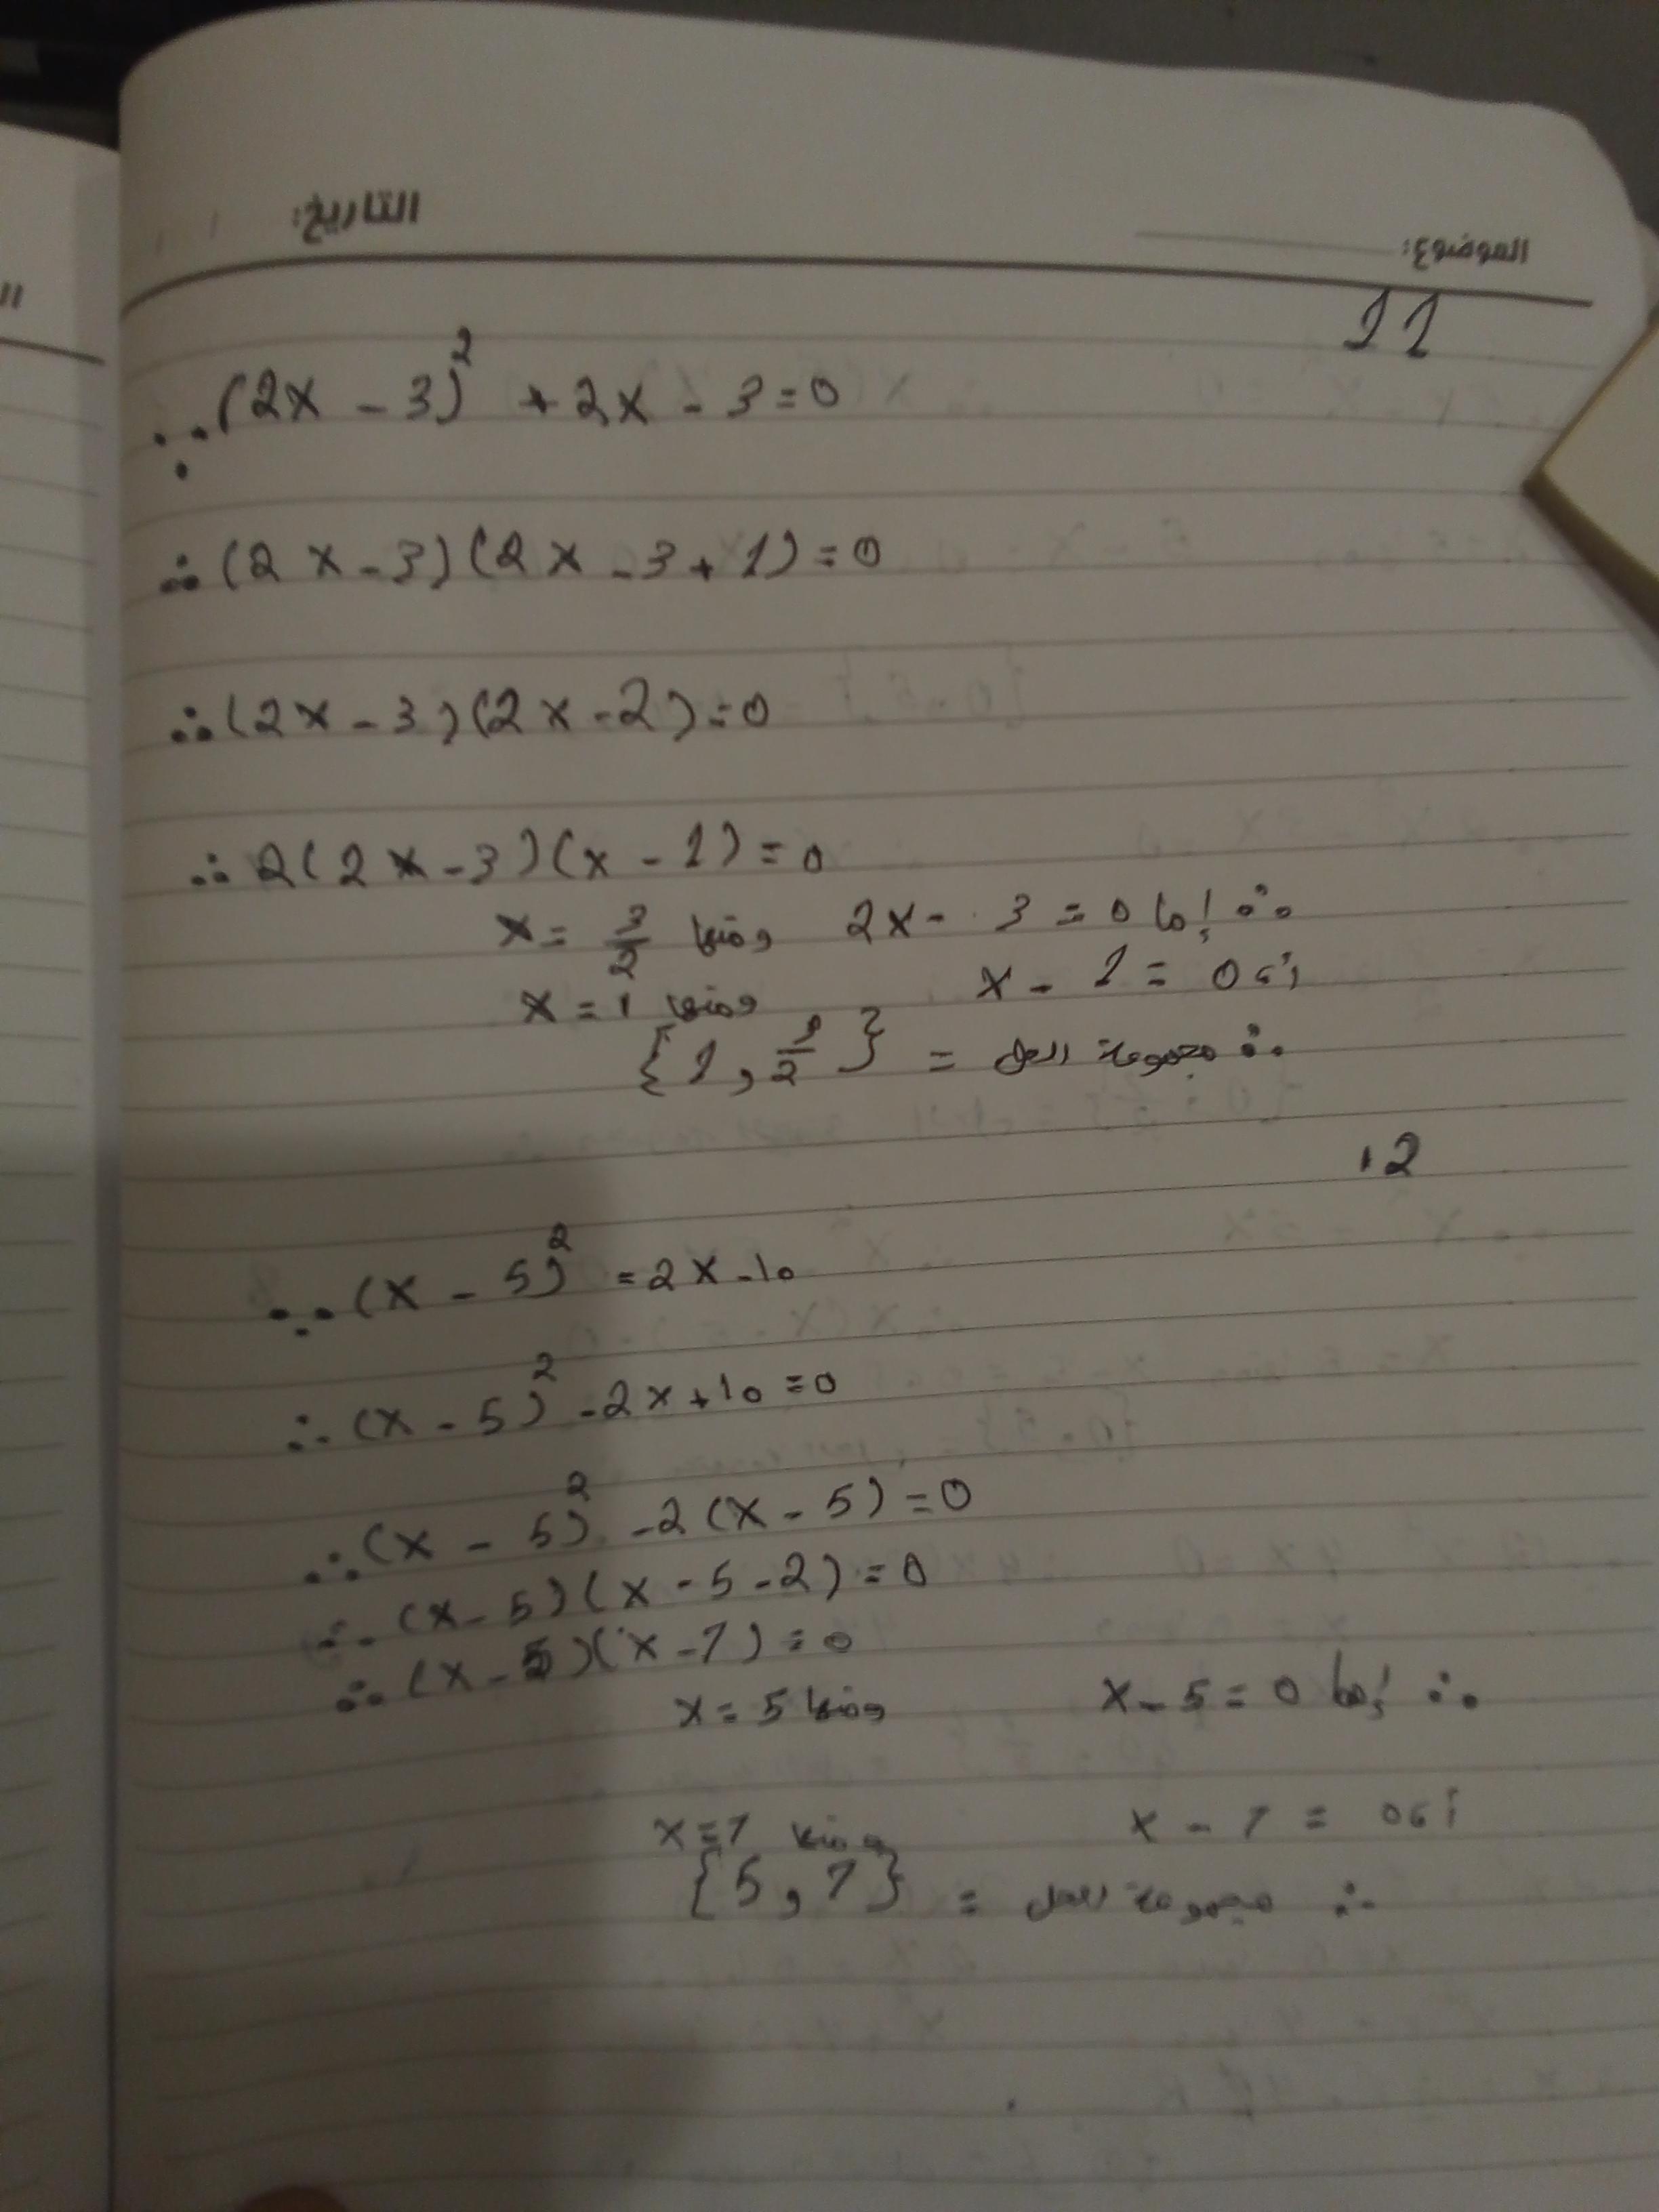 الموضوع: التاريخ: / /
11
∵ (2x - 3)² + 2x - 3 = 0
∴ (2x - 3)(2x - 3 + 1) = 0
∴ (2x - 3)(2x - 2) = 0
∴ 2(2x - 3)(x - 1) = 0
∴ إما 2x - 3 = 0 ومنها x = 3/2
أو x - 1 = 0 ومنها x = 1
∴ مجموعة الحل = {1 , 3/2}
12
∵ (x - 5)² = 2x - 10
∴ (x - 5)² - 2x + 10 = 0
∴ (x - 5)² - 2(x - 5) = 0
∴ (x - 5)(x - 5 - 2) = 0
∴ (x - 5)(x - 7) = 0
∴ إما x - 5 = 0 ومنها x = 5
أو x - 7 = 0 ومنها x = 7
∴ مجموعة الحل = {5 , 7}